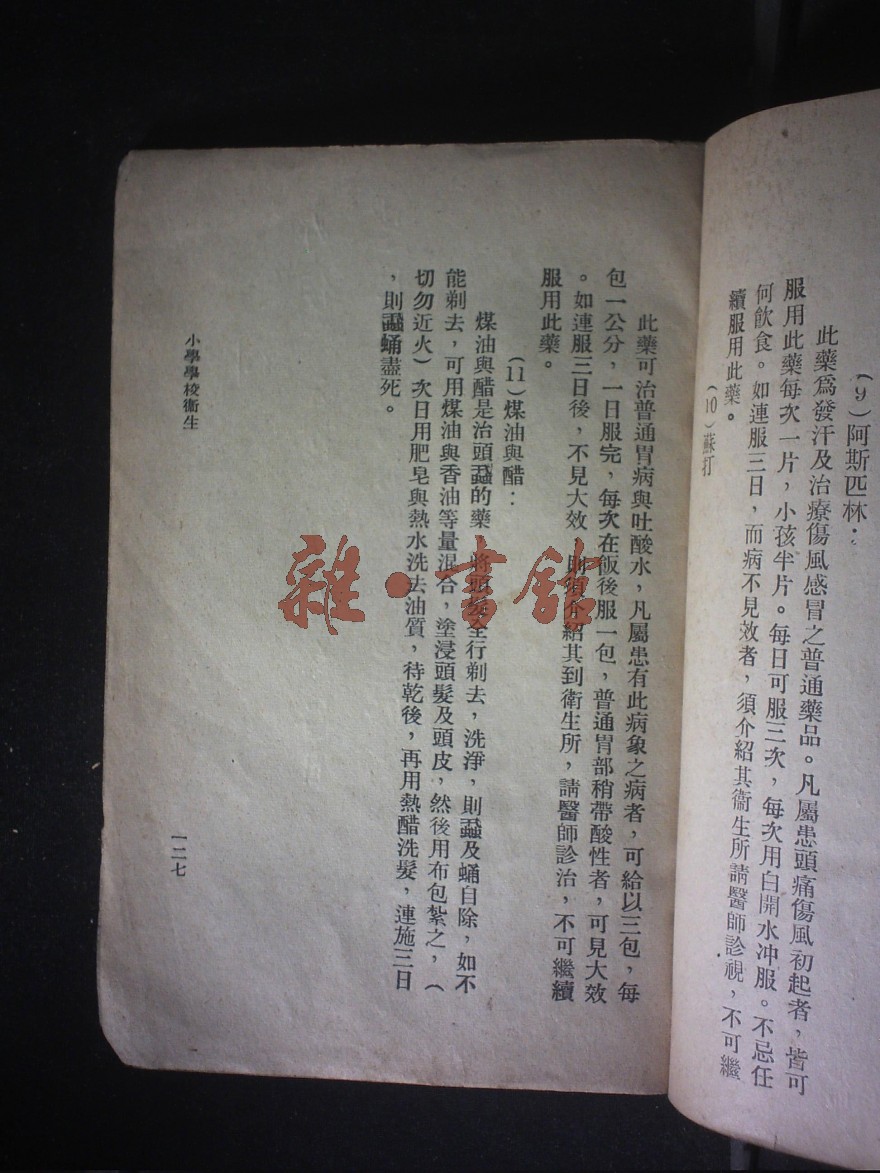 (9)阿斯匹林：
此藥爲發汗及治療傷風感冒之普通藥品。凡屬患頭痛傷風初起者，皆可
服用此藥每次一片，小孩半片。每日可服三次，每次用白開水冲服。不忌任
何飲食。如連服三日，而病不見效者，須介紹其衞生所請醫師診視，不可繼
續服用此藥。
(10)蘇打
此藥可治普通胃病與吐酸水，凡屬患有此病象之病者，可給以三包，每
包一公分，一日服完，每次在飯後服一包，普通胃部稍帶酸性者，可見大效
。如連服三日後，不見大效 則須介紹其到衛生所，請醫師診治，不可繼續
服用此藥。
(11)煤油與醋：
煤油與醋是治頭蝨的藥 將頭髮全行剃去，洗淨，則蝨及蛹自除，如不
能剃去，可用煤油與香油等量混合，塗浸頭髮及頭皮，然後用布包紮之，（
切勿近火）次日用肥皂與熱水洗去油質，待乾後，再用熱醋洗髮，連施三日
，則蝨蛹盡死。
小學學校衞生
一二七
雜·書館